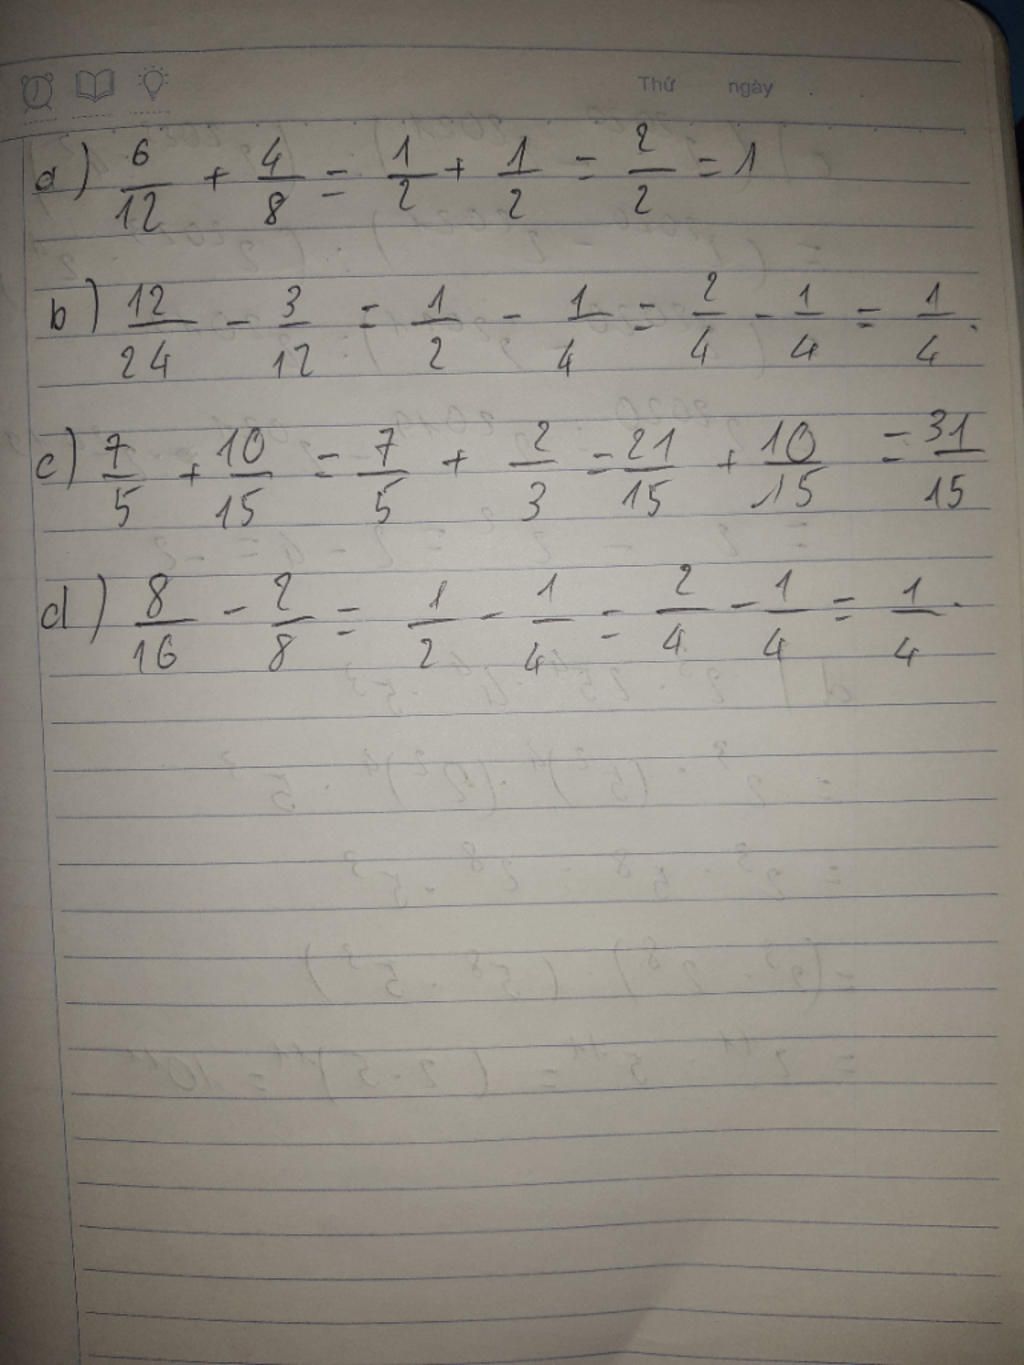 Thứ ngày
a) 6/12 + 4/8 = 1/2 + 1/2 = 2/2 = 1
b) 12/24 - 3/12 = 1/2 - 1/4 = 2/4 - 1/4 = 1/4.
c) 7/5 + 10/15 = 7/5 + 2/3 = 21/15 + 10/15 = 31/15
d) 8/16 - 2/8 = 1/2 - 1/4 = 2/4 - 1/4 = 1/4.